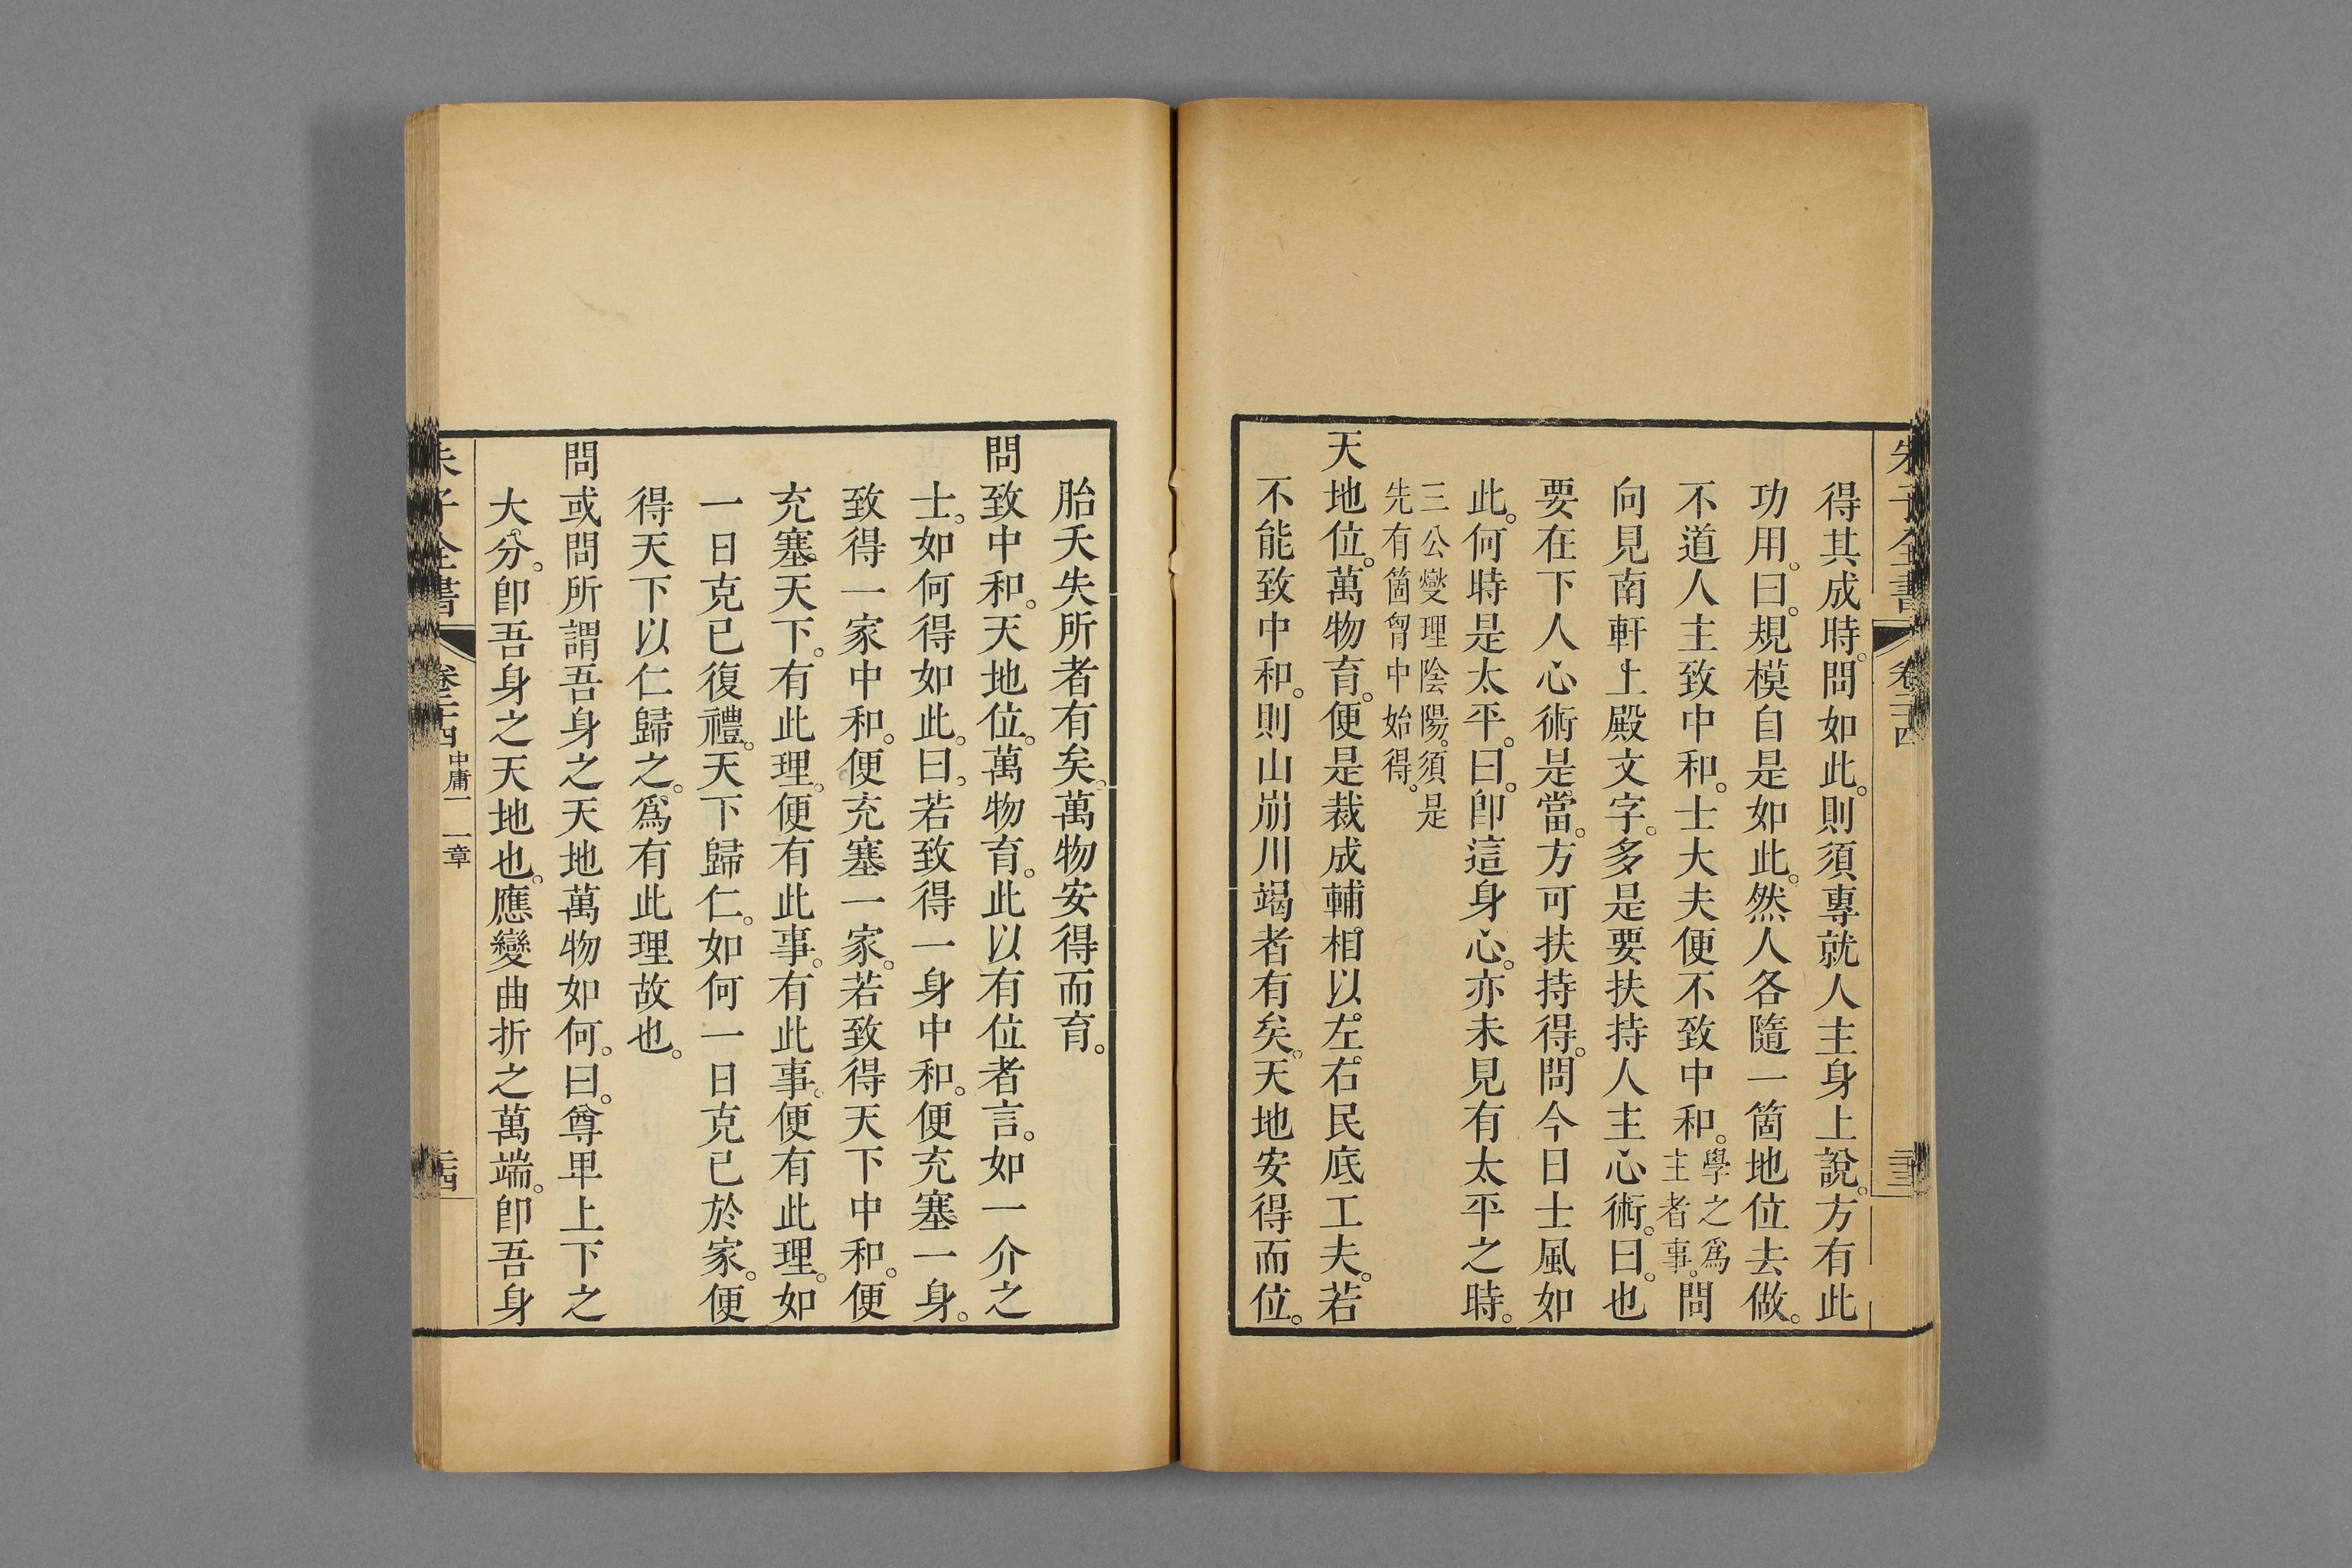 朱子全書 卷二十四
得其成時。問如此。則須專就人主身上說。方有此
功用。曰。規模自是如此。然人各隨一箇地位去做。
不道人主致中和。士大夫便不致中和。學之爲主者事。問
向見南軒上殿文字。多是要扶持人主心術。曰。也
要在下人心術是當。方可扶持得。問今日士風如
此。何時是太平。曰。卽這身心。亦未見有太平之時。
三公燮理陰陽。須是
先有箇胷中始得。
天地位。萬物育。便是裁成輔相。以左右民底工夫。若
不能致中和。則山崩川竭者有矣。天地安得而位。
胎夭失所者有矣。萬物安得而育。
問致中和。天地位。萬物育。此以有位者言。如一介之
士。如何得如此。曰。若致得一身中和。便充塞一身。
致得一家中和。便充塞一家。若致得天下中和。便
充塞天下。有此理。便有此事。有此事。便有此理。如
一日克己復禮。天下歸仁。如何一日克己於家。便
得天下以仁歸之。爲有此理故也。
問或問所謂吾身之天地萬物如何。曰。尊卑上下之
大分。卽吾身之天地也。應變曲折之萬端。卽吾身
朱子全書 卷二十四 中庸一 一章